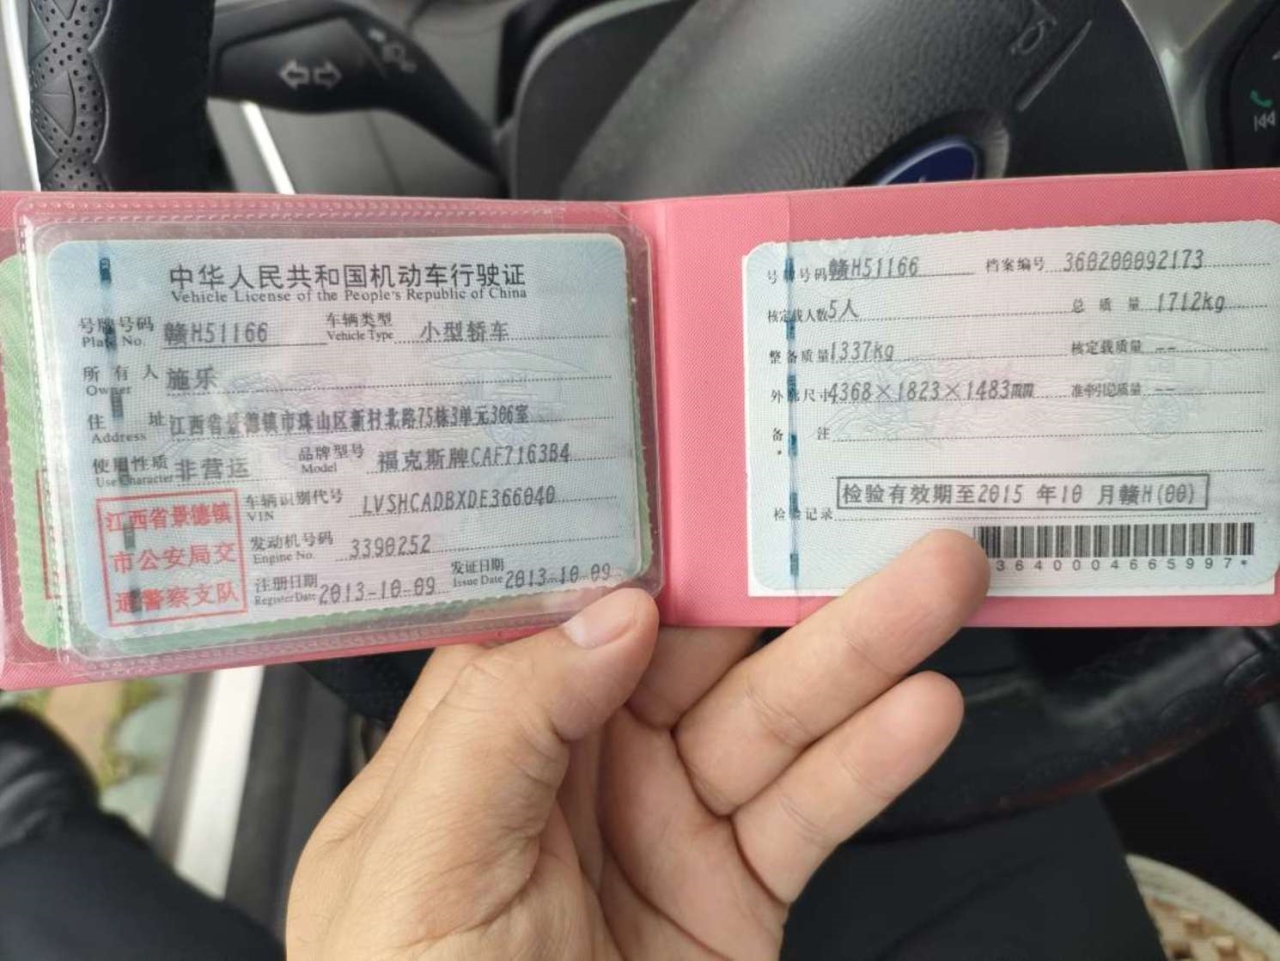 中华人民共和国机动车行驶证
Vehicle License of the People's Republic of China
号牌号码 赣H51166 车辆类型 小型轿车
Plate No. Vehicle Type
所有人 施乐
Owner
住址 江西省景德镇市珠山区新村北路75栋3单元306室
Address
使用性质 非营运 品牌型号 福克斯牌CAF7163B4
Use Character Model
江西省景德镇
市公安局交
通警察支队
车辆识别代号 LVSHCADBXDE366040
VIN
发动机号码 3390252
Engine No.
注册日期 2013-10-09 发证日期 2013-10-09
Register Date Issue Date
号牌号码 赣H51166 档案编号 360200092173
核定载人数 5人 总质量 1712kg
整备质量 1337kg 核定载质量 --
外廓尺寸 4368×1823×1483 准牵引总质量 --
备注
检验有效期至2015 年10 月赣H(00)
检验记录
3640004665997*